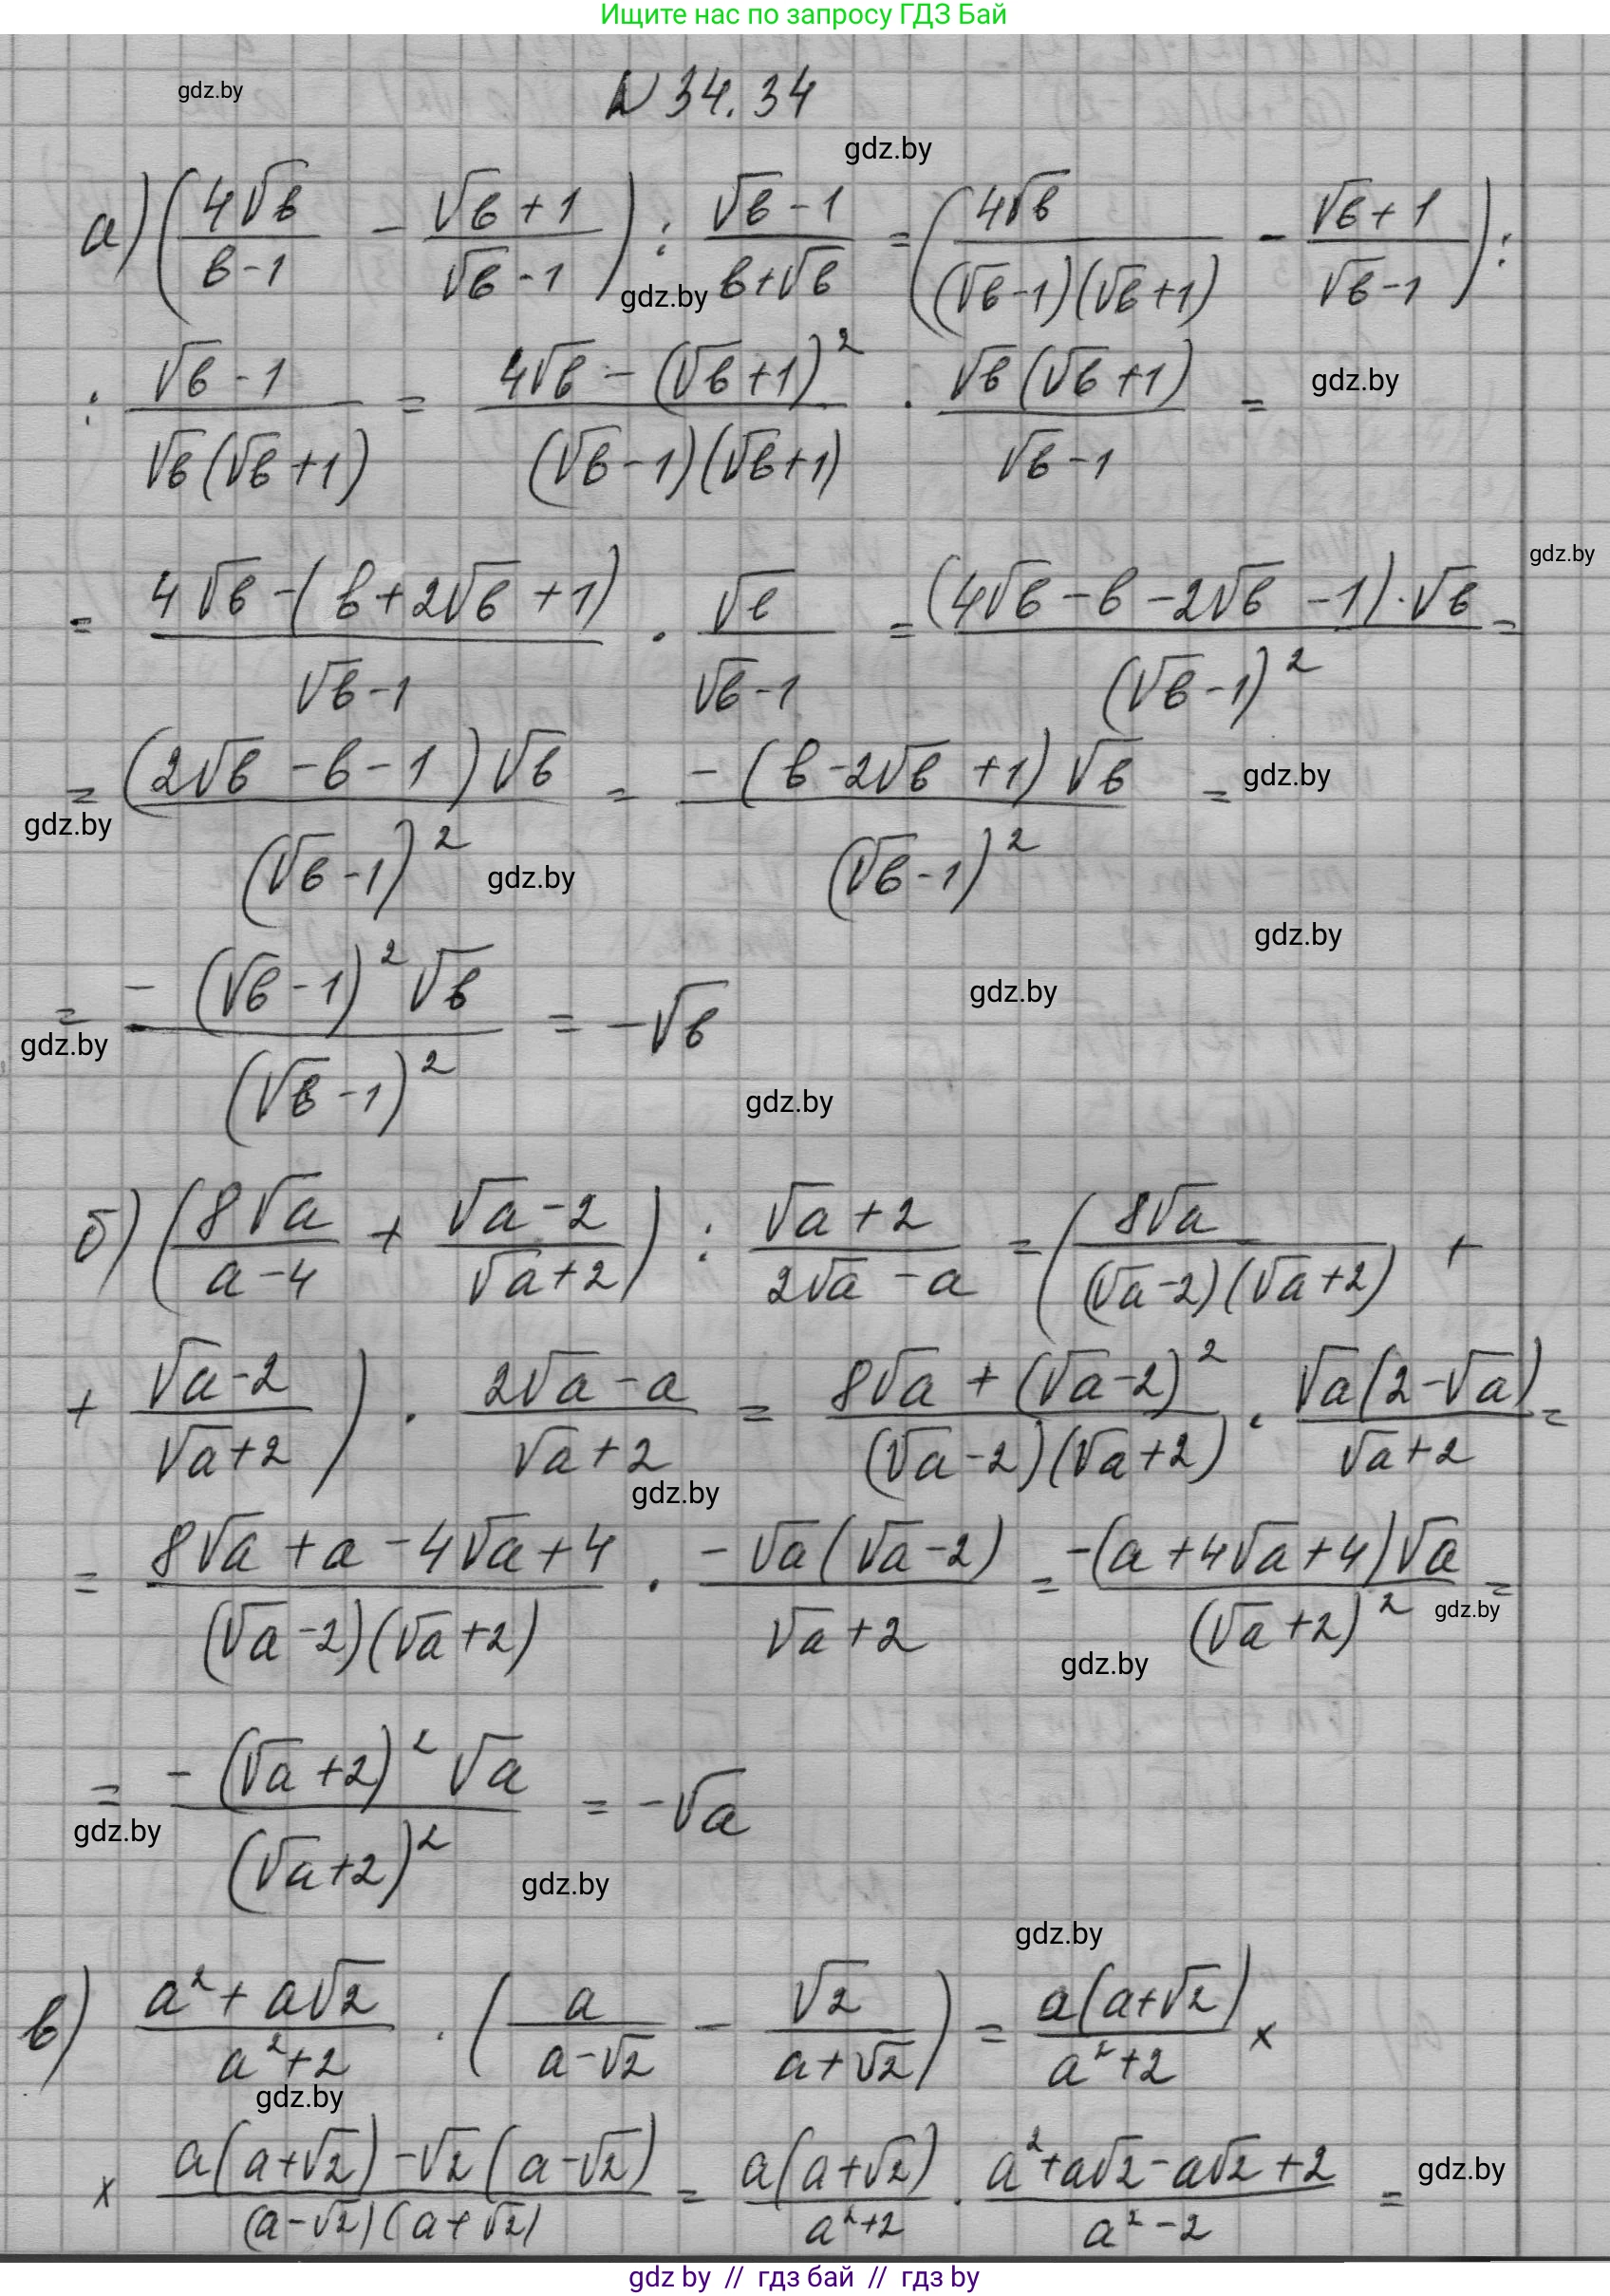 Ищите нас по запросу ГДЗ Бай
gdz.by
N 34.34
gdz.by
а) (4√в/(в-1) - (√в+1)/(√в-1)) : (√в-1)/(в+√в) = (4√в/((√в-1)(√в+1)) - (√в+1)/(√в-1)) :
gdz.by
: (√в-1)/(√в(√в+1)) = (4√в-(√в+1)²)/((√в-1)(√в+1)) · √в(√в+1)/(√в-1) =
gdz.by
gdz.by
= (4√в-(в+2√в+1))/(√в-1) · √в/(√в-1) = (4√в-в-2√в-1)·√в/(√в-1)² =
= (2√в-в-1)√в/(√в-1)² = -(в-2√в+1)√в/(√в-1)² =
gdz.by
gdz.by
gdz.by
gdz.by
= -(√в-1)²√в/(√в-1)² = -√в
gdz.by
gdz.by
gdz.by
б) (8√a/(a-4) + (√a-2)/(√a+2)) : (√a+2)/(2√a-a) = (8√a/((√a-2)(√a+2)) +
+ (√a-2)/(√a+2)) · (2√a-a)/(√a+2) = (8√a+(√a-2)²)/((√a-2)(√a+2)) · √a(2-√a)/(√a+2) =
gdz.by
= (8√a+a-4√a+4)/((√a-2)(√a+2)) · -√a(√a-2)/(√a+2) = -(a+4√a+4)√a/(√a+2)² =
gdz.by
gdz.by
= -(√a+2)²√a/(√a+2)² = -√a
gdz.by
gdz.by
gdz.by
в) (a²+a√2)/(a²+2) · (a/(a-√2) - √2/(a+√2)) = a(a+√2)/(a²+2) ×
gdz.by
× (a(a+√2)-√2(a-√2))/((a-√2)(a+√2)) = a(a+√2)/(a²+2) · (a²+a√2-a√2+2)/(a²-2) =
gdz.by
gdz by // гдз бай // гдз by